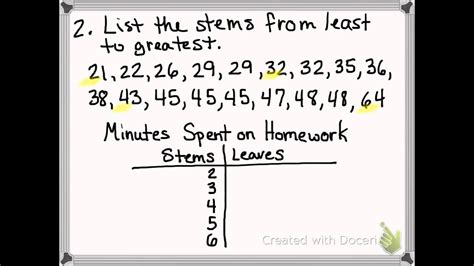 2. List the stems from least
to greatest.
21, 22, 26, 29, 29, 32, 32, 35, 36,
38, 43, 45, 45, 45, 47, 48, 48, 64
Minutes Spent on Homework
Stems Leaves
2
3
4
5
6
Created with Doceri